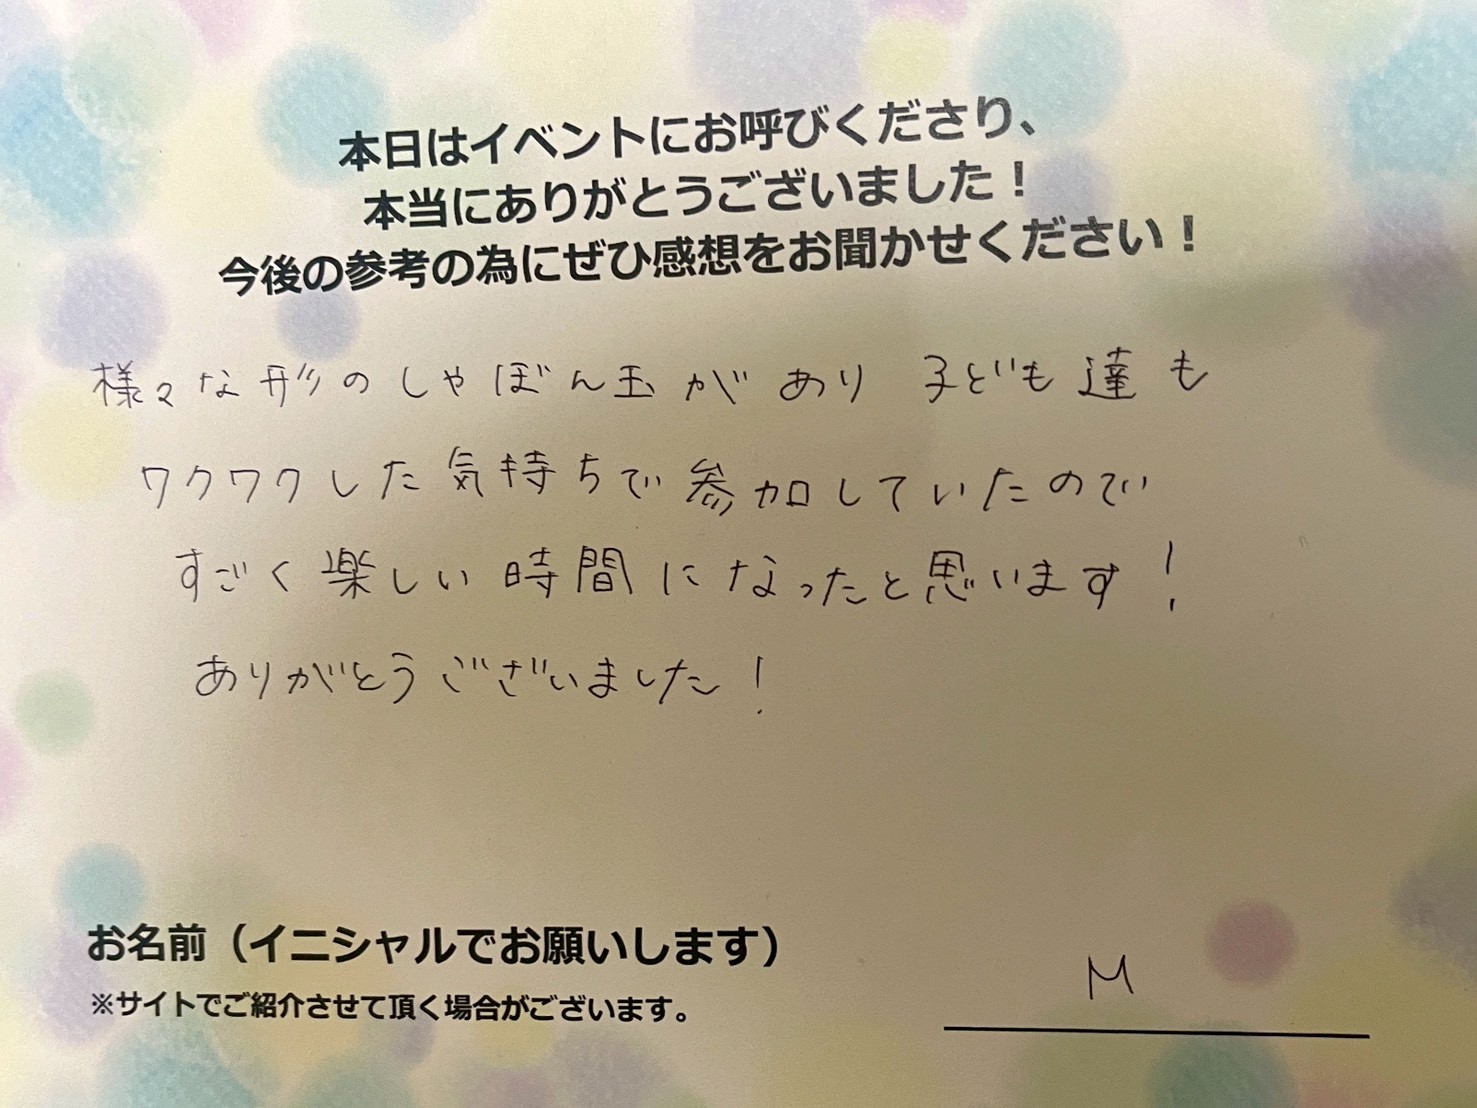 本日はイベントにお呼びくださり、
本当にありがとうございました！
今後の参考の為にぜひ感想をお聞かせください！
様々な形のしゃぼん玉があり 子ども達も
ワクワクした気持ちで参加していたので
すごく楽しい時間になったと思います！
ありがとうございました！
お名前（イニシャルでお願いします）
M
※サイトでご紹介させて頂く場合がございます。